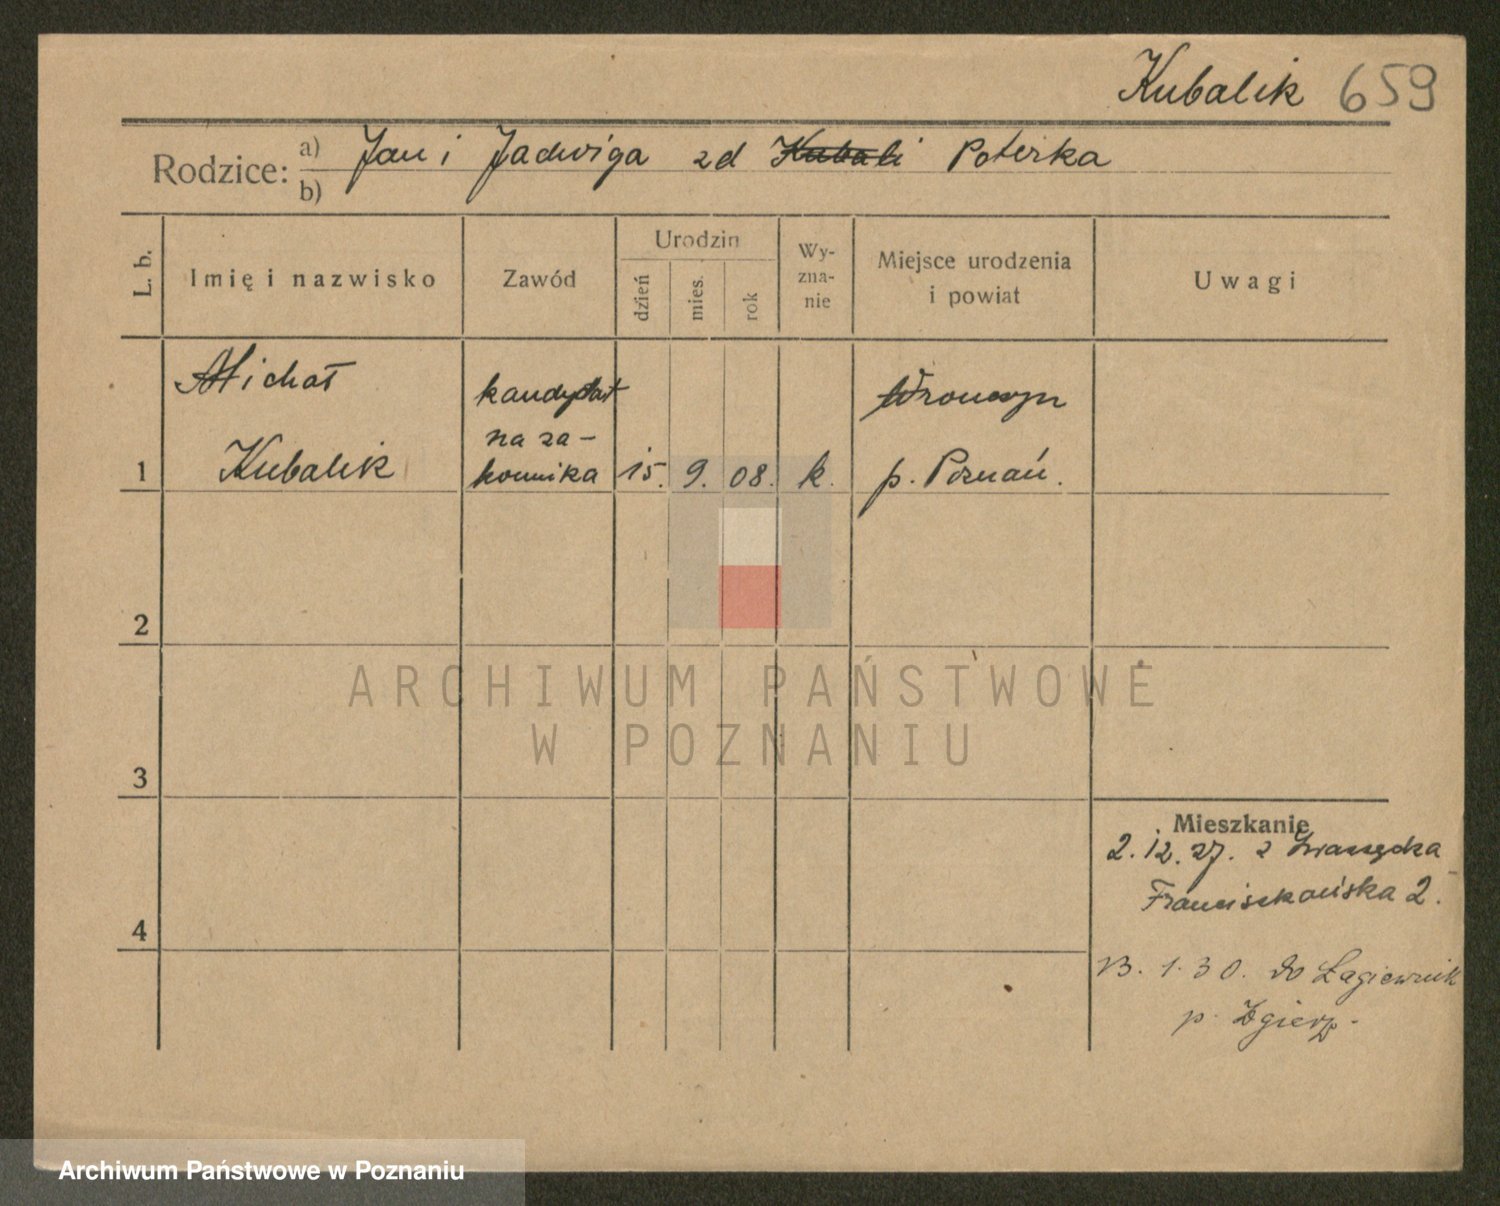 Kubalik 659
Rodzice: a) Jan i Jadwiga zd Kubali Poterka
b)
L. b.
Imię i nazwisko
Zawód
Urodzin
dzień
mies.
rok
Wy-
zna-
nie
Miejsce urodzenia
i powiat
Uwagi
Michał
Kubalik
kandydat
na za-
konnika
1
15. 9. 08. k.
Wronczyn
p. Poznań.
2
3
4
Mieszkanie
2. 12. 27. z
Franciszkańska 2.
13. 1. 30. do Łagiewnik
p. Zgierz.
ARCHIWUM PAŃSTWOWE
W POZNANIU
Archiwum Państwowe w Poznaniu